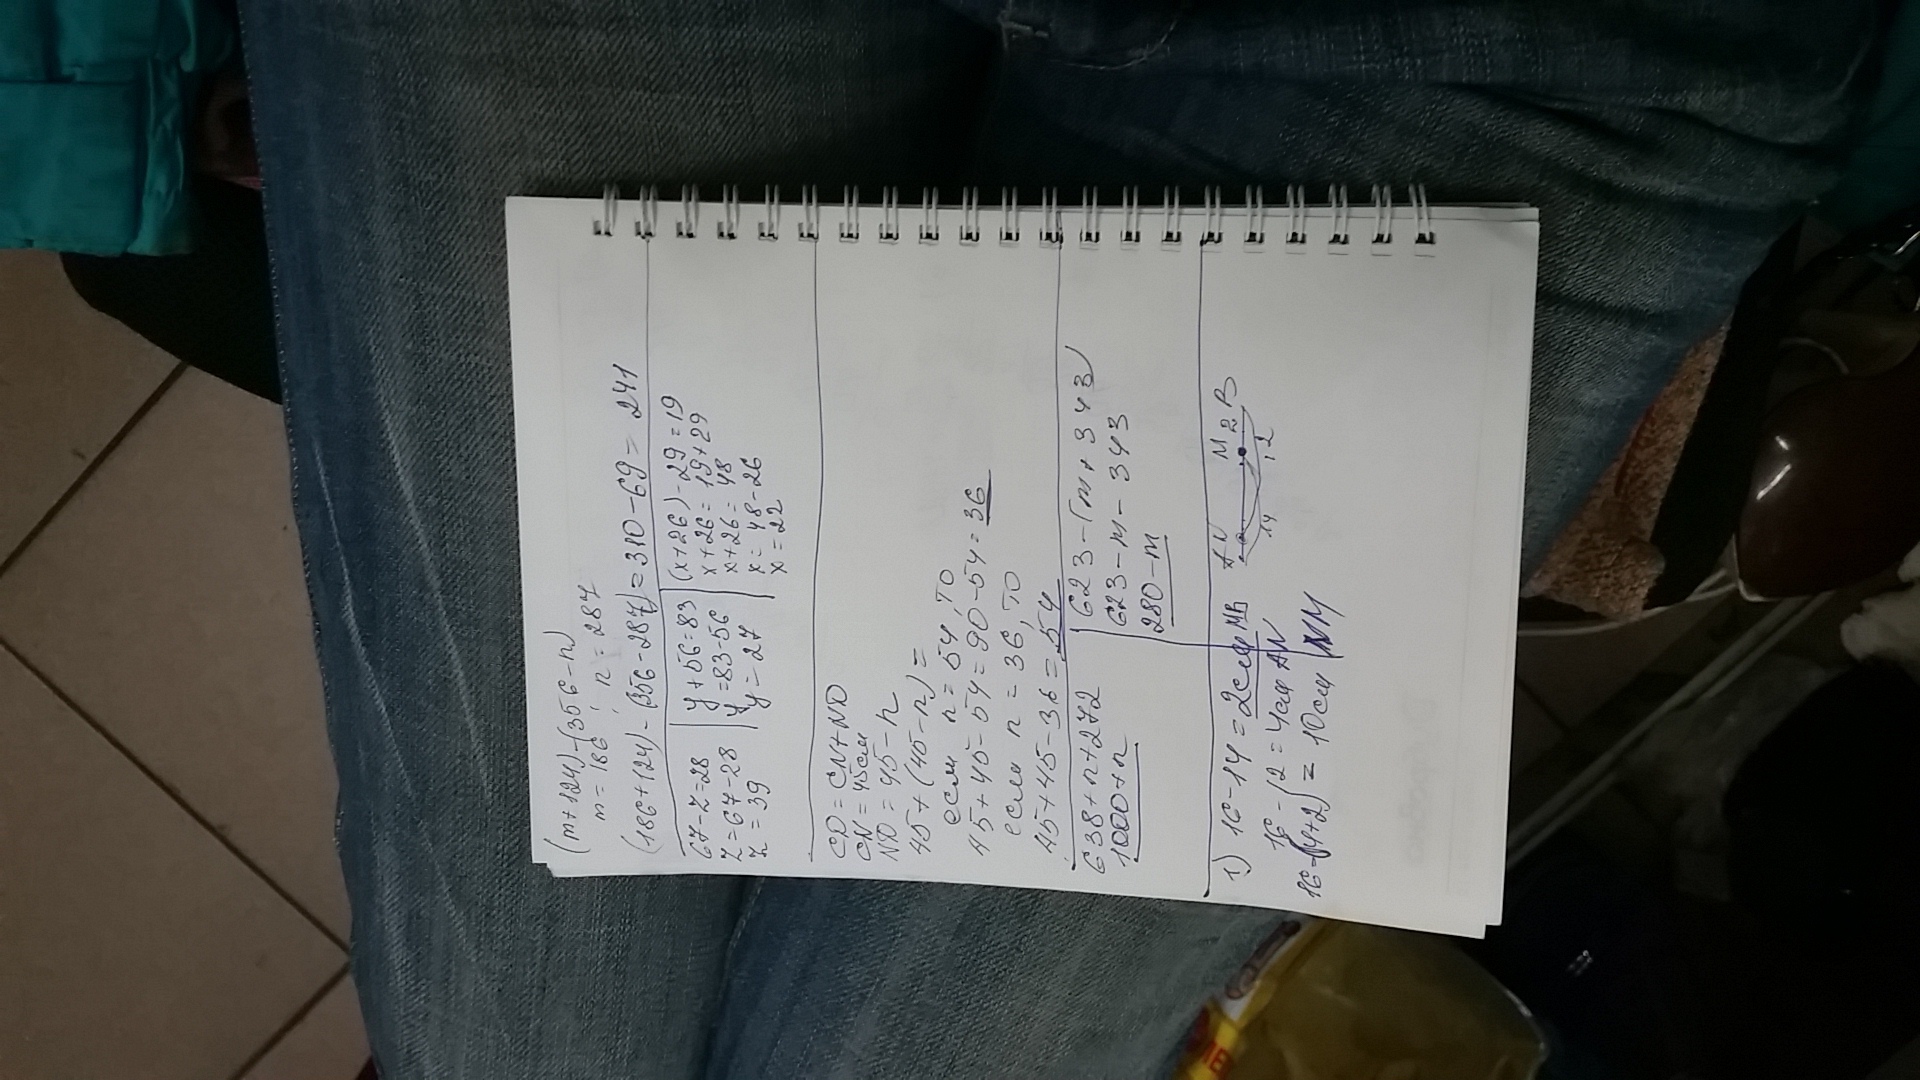 (m+124)-(356-n)
m=186, n=287
(186+124)-(356-287)=310-69=241
67-z=28
z=67-28
z=39
y+56=83
y=83-56
y=27
(x+26)-29=19
x+26=19+29
x+26=48
x=48-26
x=22
CD=CN+ND
CN=45см
ND=45-n
45+(45-n)=
если n=54, то
45+45-54=90-54=36
если n=36, то
45+45-36=54
638+n+272
1000+n
623-(m+343)
623-m-343
280-m
1) 16-14=2см MB
16-12=4см AN
16-(4+2)=10см NM
A N M 2 B
14 12